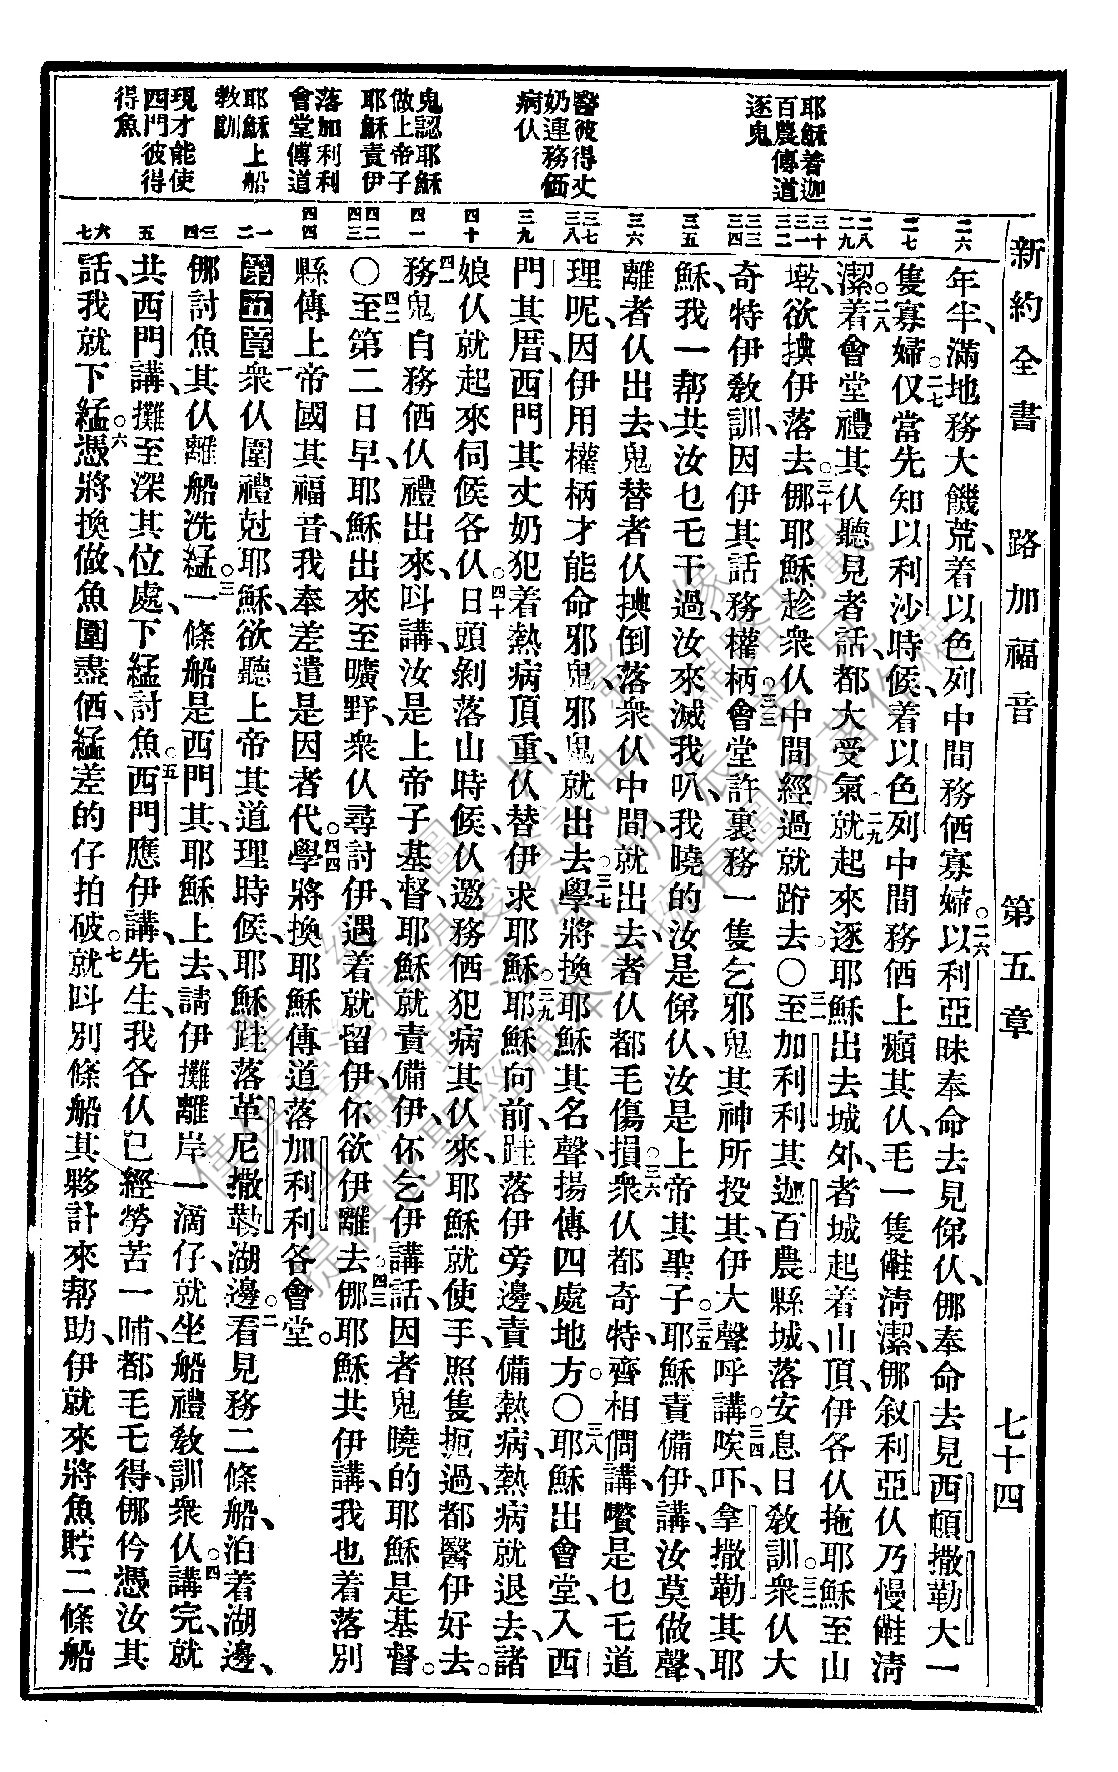 新約全書 路加福音 第五章 七十四
耶穌着迦
百農傳道
逐鬼
醫彼得丈
奶連務価
病仈
鬼認耶穌
做上帝子
耶穌責伊
落加利利
會堂傳道
耶穌上船
教訓
現才能使
西門彼得
得魚
二六
二七
二八
二九
三十
三一
三二
三三
三四
三五
三六
三七
三八
三九
四十
四一
四二
四三
四四
一
二
三
四
五
六
七
年半、滿地務大饑荒、着以色列中間務価寡婦。二六以利亞昧奉命去見俤仈、那奉命去見西頓撒勒大一
隻寡婦。二七仅當先知以利沙時候、着以色列中間務価上癩其仈、毛一隻㑚淸潔、那叙利亞仈乃慢㑚淸
潔。二八着會堂禮其仈聽見者話、都大受氣、二九就起來逐耶穌出去城外、者城起着山頂、伊各仈拖耶穌至山
墘、欲㨻伊落去。三十那耶穌趁衆仈中間經過就跡去。〇三一至加利利其迦百農縣城、落安息日敎訓衆仈。三二仈大
奇特伊敎訓、因伊其話務權柄。三三會堂許裏務一隻乞邪鬼其神所投其、伊大聲呼講、三四唉吓、拿撒勒其耶
穌、我一帮共汝乜乇干過、汝來滅我叭、我曉的汝是俤仈、汝是上帝其聖子。三五耶穌責備伊講、汝莫做聲、
離者仈出去、鬼替者仈㨻倒落衆仈中間、就出去、者仈都毛傷損。三六衆仈都奇特、齊相㑚講、嚽是乜乇道
理呢、因伊用權柄才能命邪鬼、邪鬼就出去。三七學將換耶穌其名聲、揚傳四處地方。〇三八耶穌出會堂、入西
門其厝、西門其丈奶犯着熱病頂重、仈替伊求耶穌。三九耶穌向前、跬落伊旁邊、責備熱病、熱病就退去、諸
娘仈就起來伺候各仈。四十日頭剝落山時候、仈邀務価犯病其仈來、耶穌就使手、照隻扼過、都醫伊好去。
四一務鬼自務価仈禮出來、叫講、汝是上帝子基督、耶穌就責備伊、伓乞伊講話、因者鬼曉的耶穌是基督。
〇四二至第二日早、耶穌出來至曠野、衆仈尋討伊、遇着就留伊、伓欲伊離去。四三那耶穌共伊講、我也着落別
縣傳上帝國其福音、我奉差遣是因者代。四四學將換耶穌傳道落加利利各會堂。
第五章 一衆仈圍禮尅耶穌、欲聽上帝其道理時候、耶穌跬落革尼撒勒湖邊。二看見務二條船、泊着湖邊、
那討魚其仈離船洗縆。三一條船是西門其、耶穌上去、請伊攤離岸一滴仔、就坐船禮敎訓衆仈。四講完、就
共西門講、攤至深其位處、下縆討魚。五西門應伊講、先生、我各仈已經勞苦一晡、都毛乇得、那仱憑汝其
話、我就下縆。六憑將換做、魚圍盡価、縆差的仔拍破。七就叫別條船其夥計來帮助、伊就來、將魚貯二條船